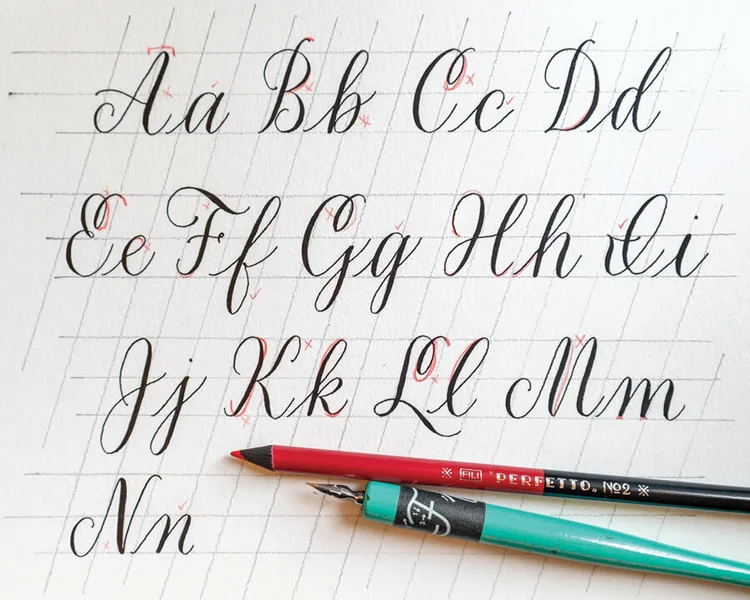 Aa Bb Cc Dd
Ee Ff Gg Hh Ii
Jj Kk Ll Mm
FILI PERFETTO. Nº2
Nn